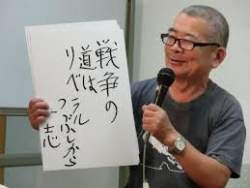 戦争の
道は
リベラル
つぶしから